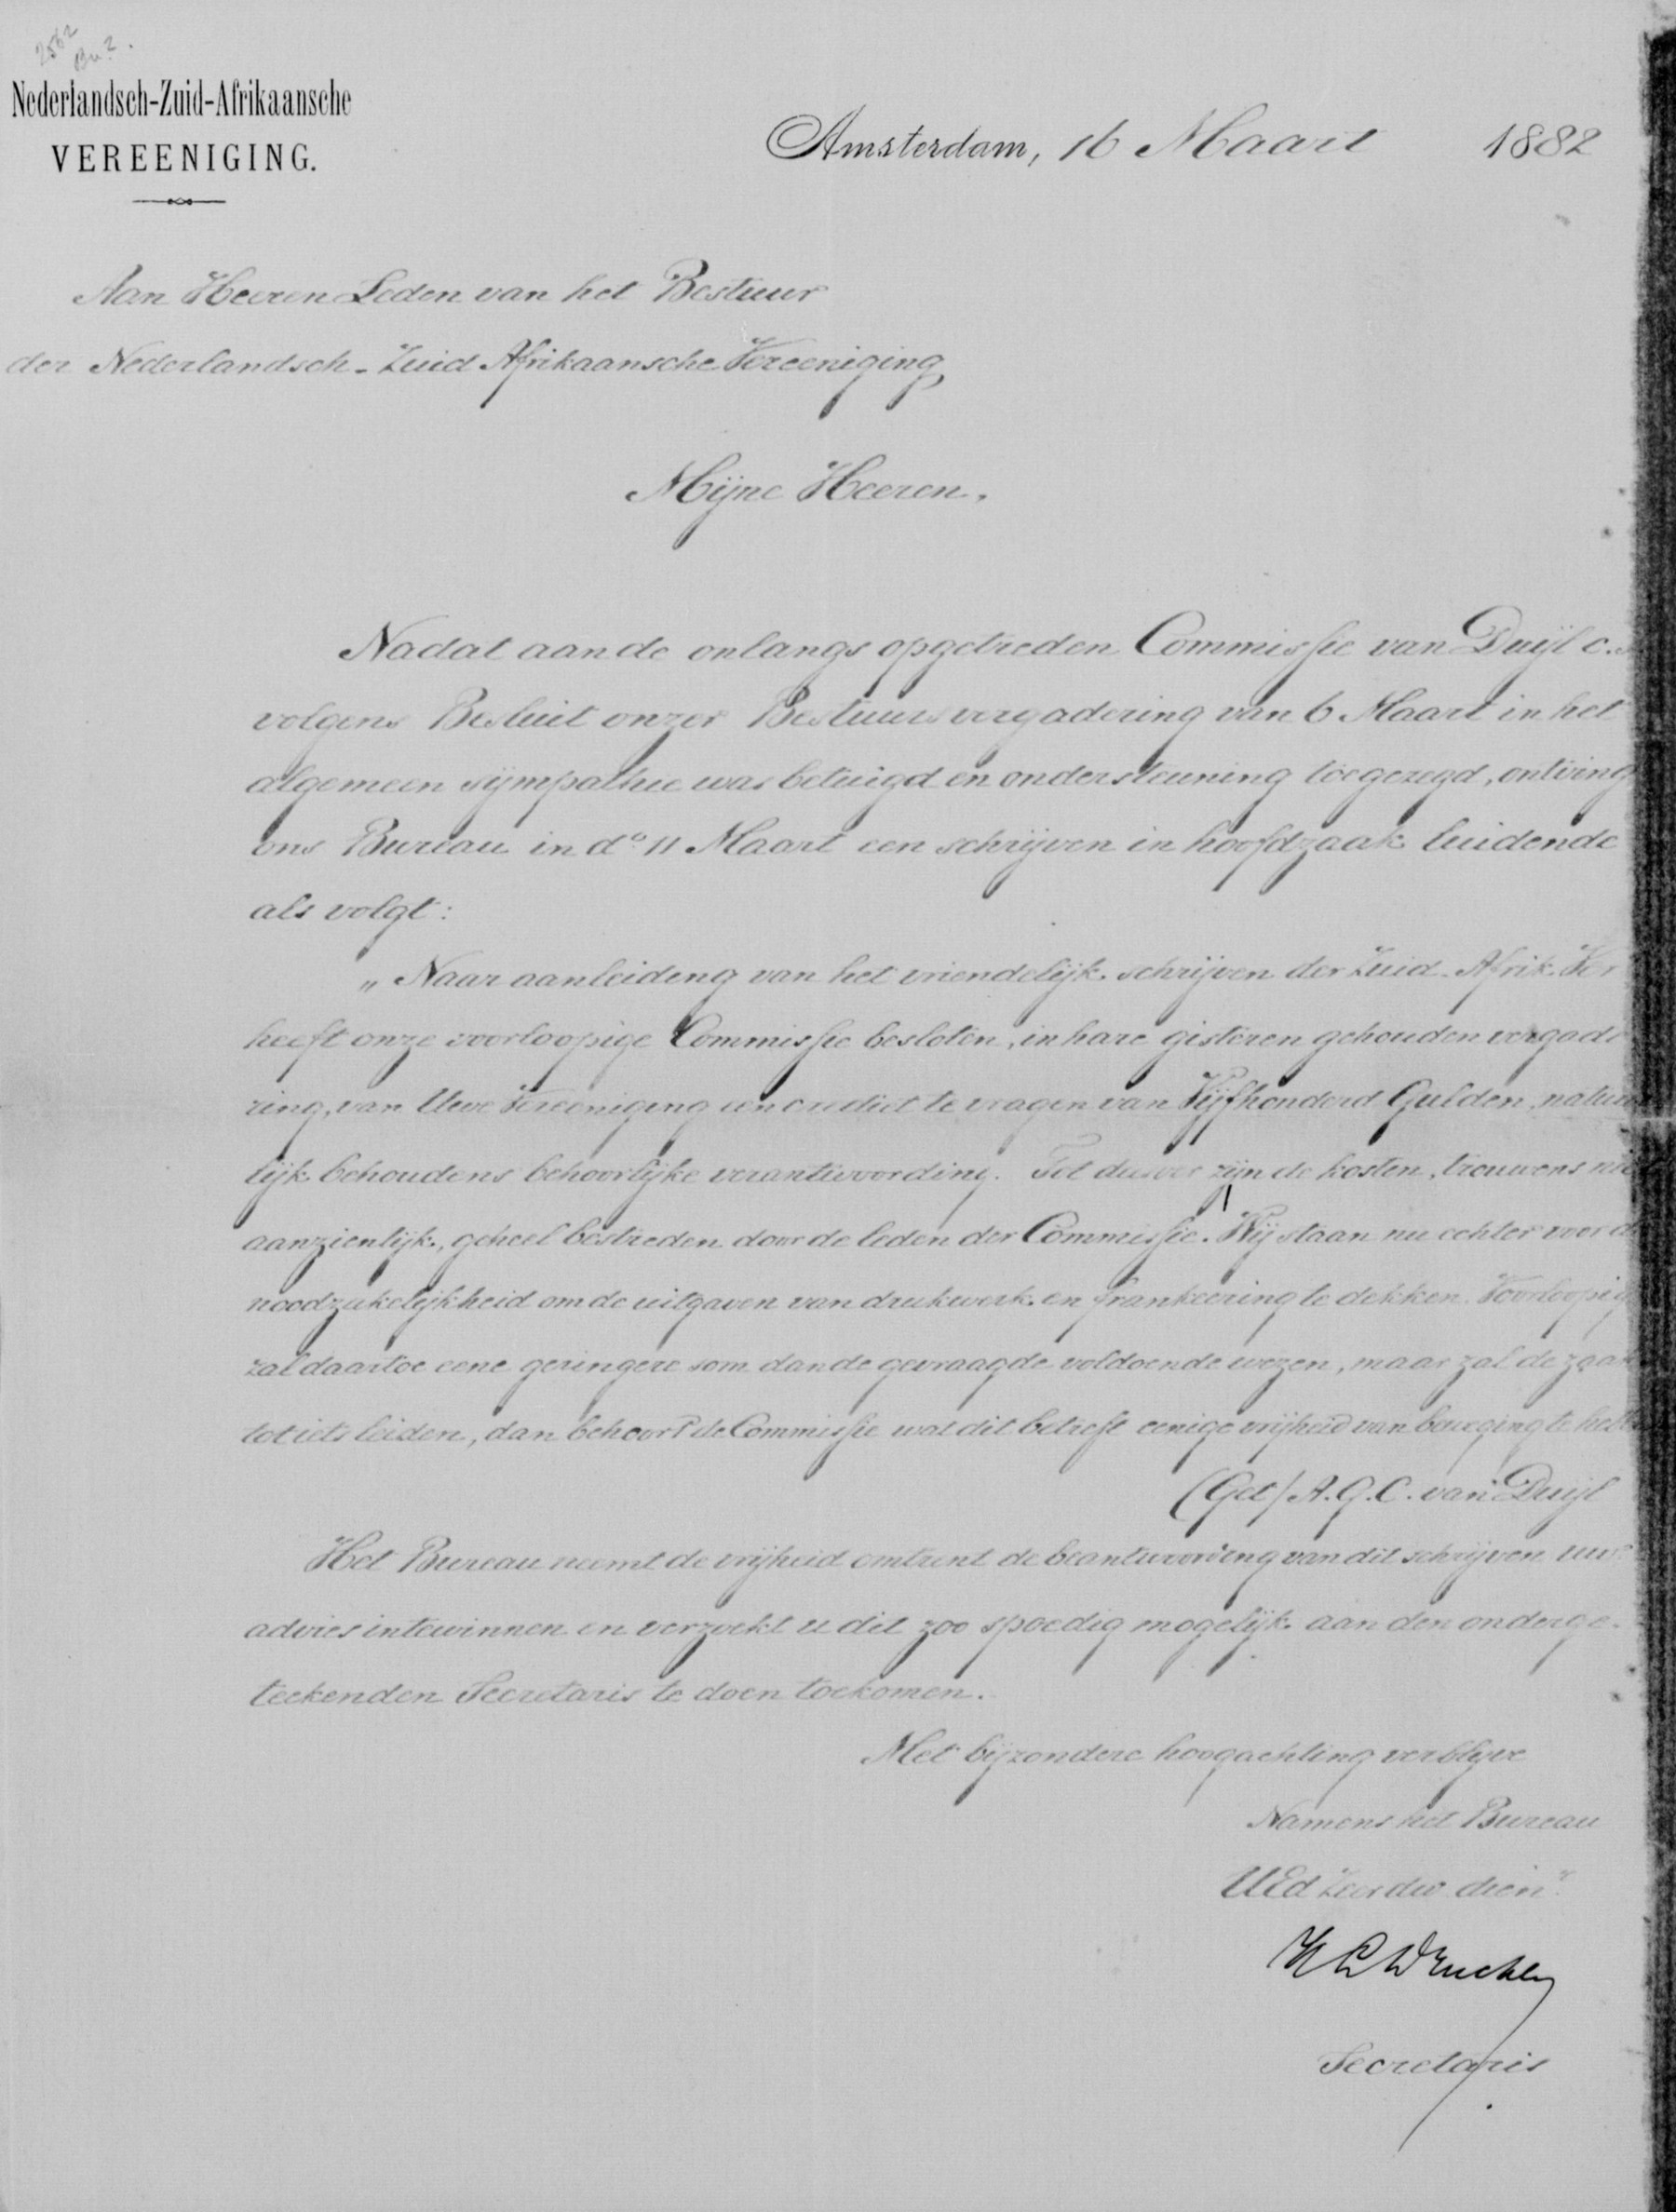 2582
Nederlandsch-Zuid-Afrikaansche
VEREENIGING.
Amsterdam, 16 Maart 1882
Aan Heeren Leden van het Bestuur
der Nederlandsch-Zuid Afrikaansche Vereeniging
Mijne Heeren,
Nadat aan de onlangs opgetreden Commissie van Duijl c.s
volgens Besluit onzer Bestuursvergadering van 6 Maart in het
algemeen sÿmpathie was betuigd en ondersteuning toegezegd, ontving
ons Bureau in do 11 Maart een schrijven in hoofdzaak luidende
als volgt:
„Naar aanleiding van het vriendelijk schrijven der Zuid-Afrik. Ver
heeft onze voorloopige Commissie besloten, in hare gisteren gehouden vergade
ring, van Uwe Vereeniging een crediet te vragen van Vijfhonderd Gulden, natuur
lijk behoudens behoorlijke verantwoording. Tot dusver zijn de kosten, trouwens niet
aanzienlijk, geheel bestreden door de leden der Commissie. Wij staan nu echter voor de
noodzakelijkheid om de uitgaven van drukwerk en frankeering te dekken. Voorloopig
zal daartoe eene geringere som dan de gevraagde voldoende wezen, maar zal de zaak
tot iets leiden, dan behoort de Commissie wat dit betreft eenige vrijheid van beweging te hebben
(Get) A. G. C. van Duijl
Het Bureau neemt de vrijheid omtrent de beantwoording van dit schrijven uw
advies intewinnen en verzoekt u dit zoo spoedig mogelijk aan den onderge-
teekenden Secretaris te doen toekomen.
Met bijzondere hoogachting verblijve
Namens het Bureau
UEd Zeer dw dien.r
Secretaris